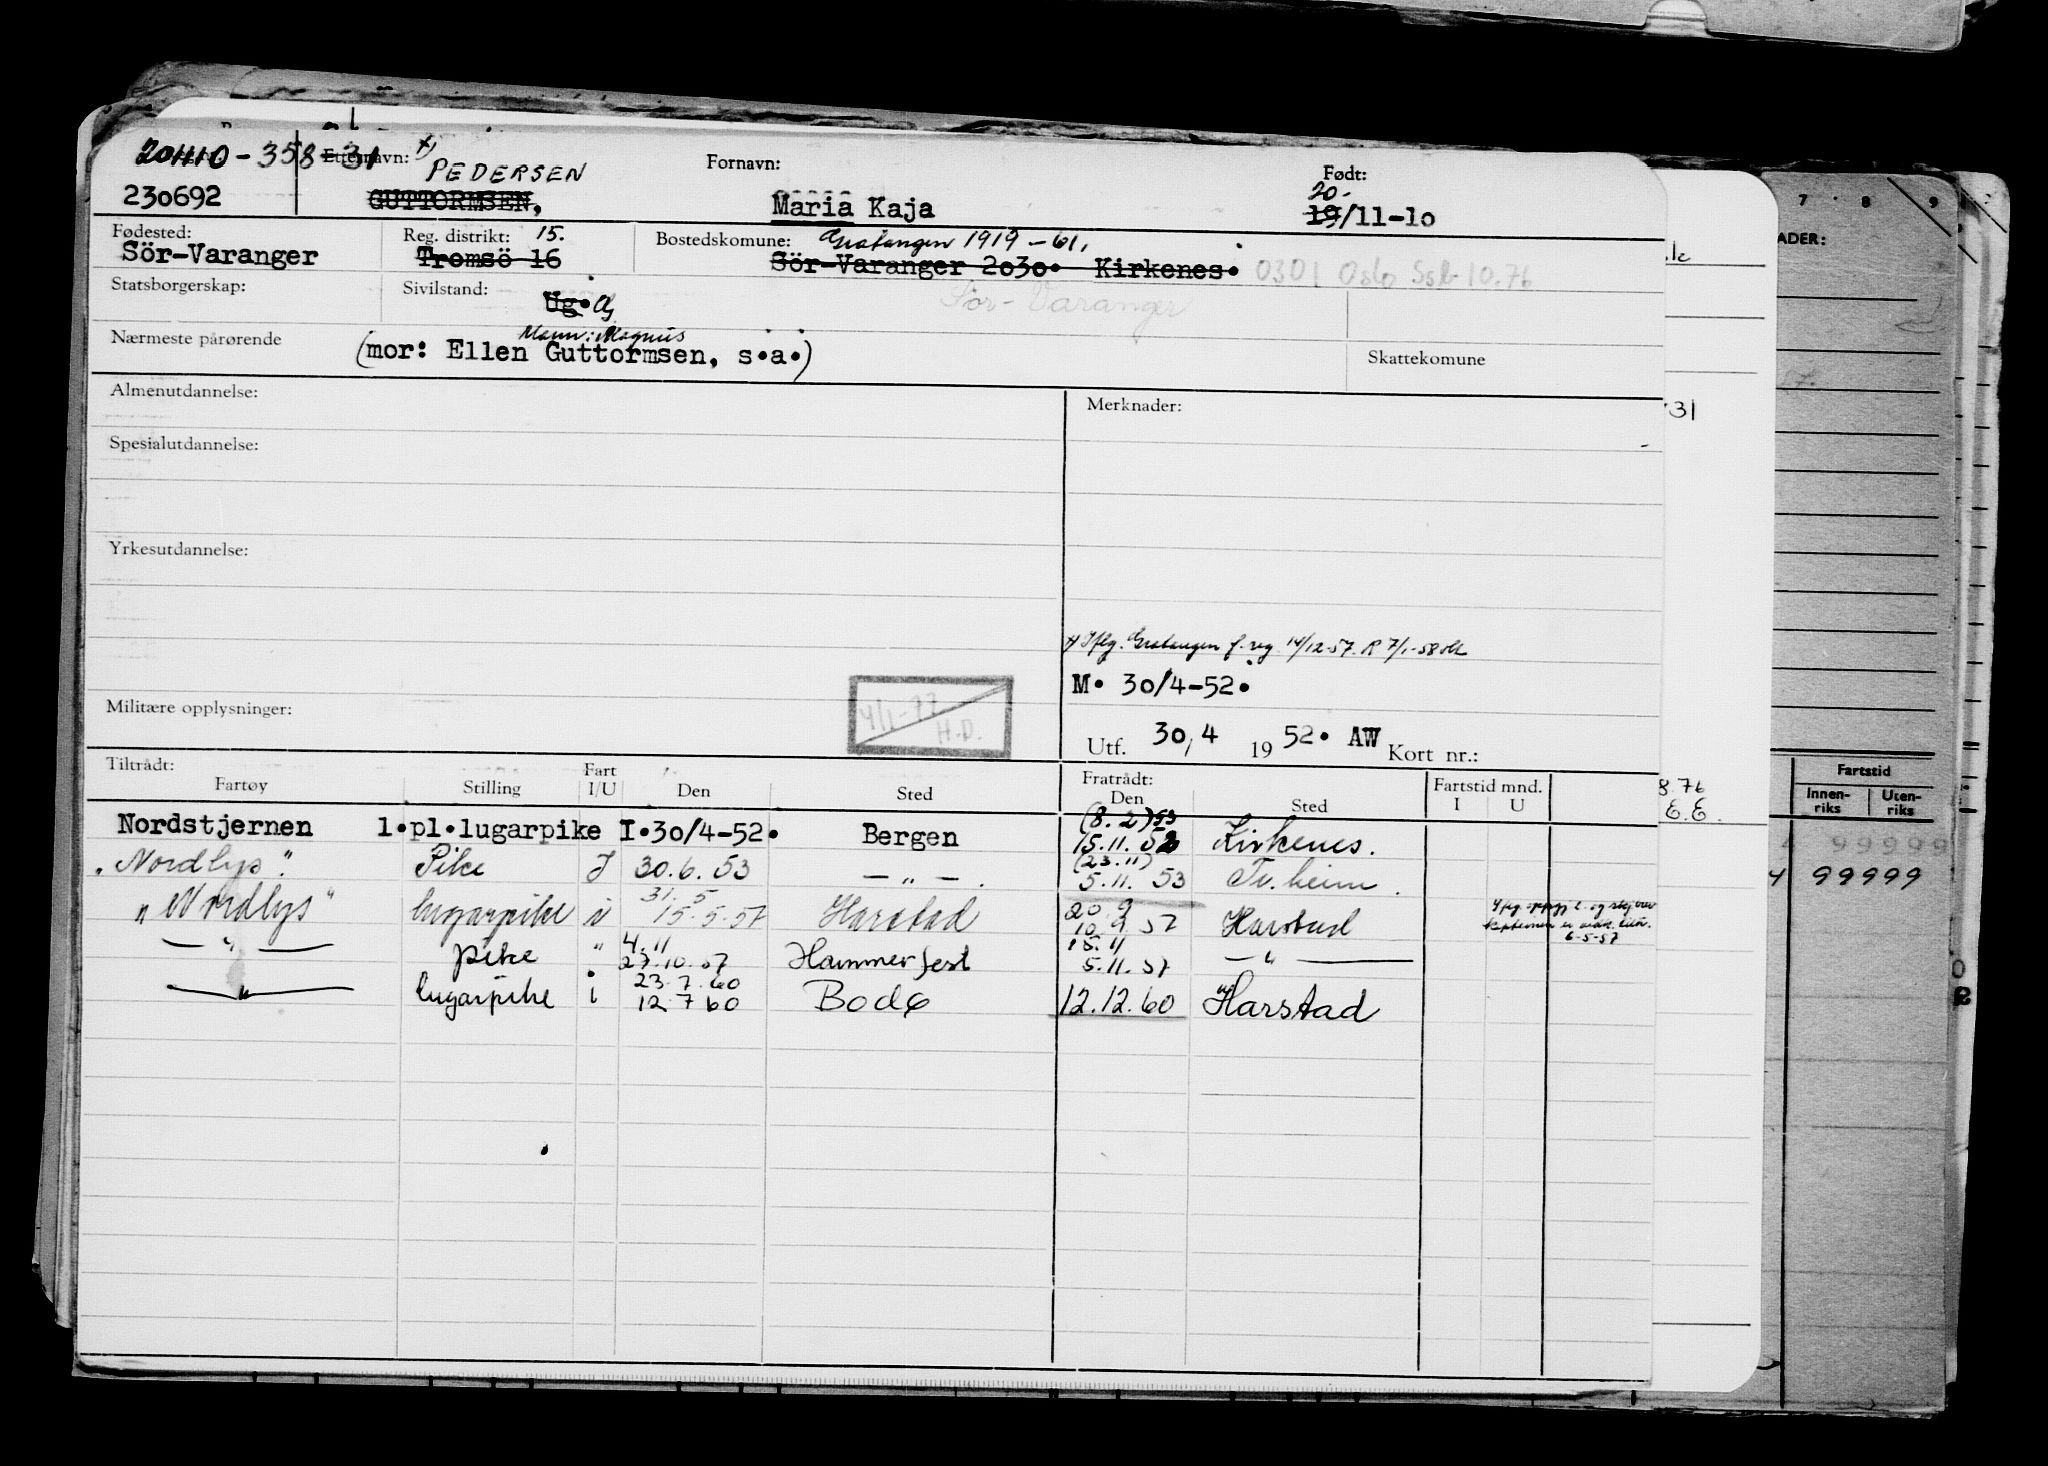 201110-358-31 Etternavn: x) Fornavn: Født:
PEDERSEN 20-
230692 GUTTORMSEN, Maria Kaja 19/11-10
Fødested: Reg. distrikt: 15. Bostedskomune: Gratangen 1919-61,
Sör-Varanger Tromsö 16 Sör-Varanger 2030. Kirkenes. 0301 Oslo Ssb 10.76
Statsborgerskap: Sivilstand: Ug. G Sør-Varanger
Mann: Magnus
Nærmeste pårørende (mor: Ellen Guttormsen, s.a.) Skattekomune
Almenutdannelse: Merknader:
Spesialutdannelse:
Yrkesutdannelse:
x) Iflg. Gratangen f.reg 14/12-57. R 7/1-58
M. 30/4-52.
Militære opplysninger: 4/1-77 H.D.
Utf. 30,4 1952. AW Kort nr.:
Tiltrådt: Fratrådt:
Fartøy Stilling Fart I/U Den Sted Den Sted Fartstid mnd. I U
(8.2) 53
Nordstjernen 1.pl.lugarpike I.30/4-52. Bergen 15.11.52 Kirkenes.
(23.11)
"Nordlys". Pike I 30.6.53 — " — . 5.11.53 Tr.heim.
31.5 20.9
"Nordlys" lugarpike i 15.5.57 Harstad 10 9 57 Harstad
6-5-57
4.11 15.11
— " — pike " 27.10.57 Hammerfest 5.11.57 — " —
23.7.60
— " — lugarpike i 12.7 60 Bodø 12.12.60 Harstad
7 8 9
ADER:
731
8.76
E.E.
Fartstid
Innen-riks Uten-riks
99999
99999